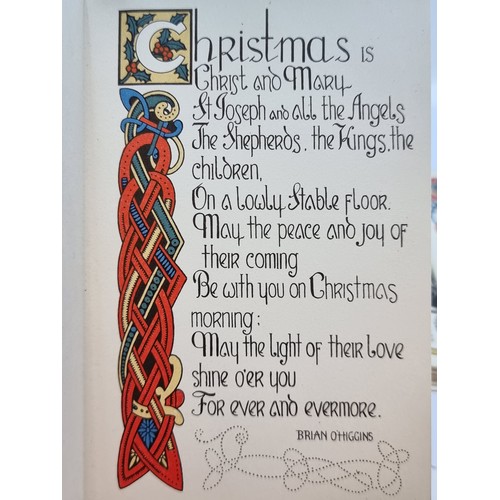 Christmas is
Christ and Mary
St Joseph and all the Angels
The Shepherds, the Kings, the
children,
On a lowly Stable floor.
May the peace and joy of
their coming
Be with you on Christmas
morning:
May the light of their love
shine o'er you
For ever and evermore.
BRIAN O'HIGGINS